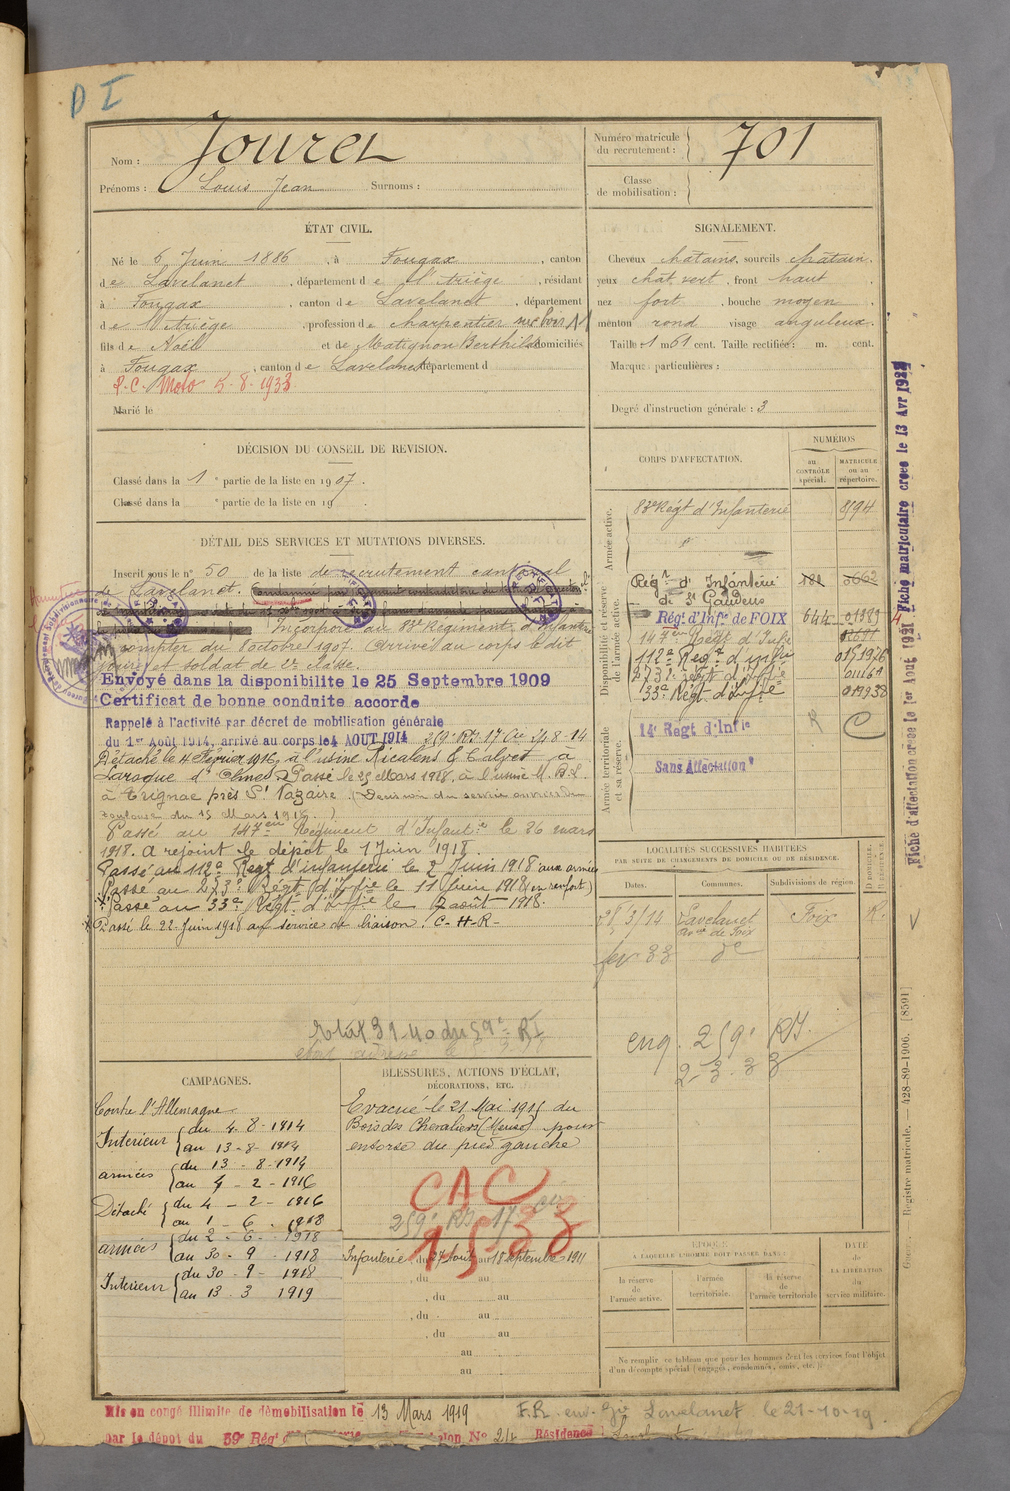 D I
Nom : Jouret
Prénoms : Louis Jean Surnoms :
Numéro matricule du recrutement : 701
Classe de mobilisation :
ÉTAT CIVIL.
Né le 6 Juin 1886, à Fougax, canton
de Lavelanet, département de l'Ariège, résidant
à Fougax, canton de Lavelanet, département
de l'Ariège, profession de charpentier sur bois
fils de Noël et de Matignon Berthilde domiciliés
à Fougax, canton de Lavelanet département d
P.C. Moto 5-8-1933
Marié le
SIGNALEMENT.
Cheveux châtains, sourcils châtain,
yeux chat. vert, front haut,
nez fort, bouche moyen,
menton rond visage anguleux.
Taille : 1 m 61 cent. Taille rectifiée : m. cent.
Marques particulières :
Degré d'instruction générale : 3
DÉCISION DU CONSEIL DE REVISION.
Classé dans la 1e partie de la liste en 1907.
Classé dans la e partie de la liste en 19 .
DÉTAIL DES SERVICES ET MUTATIONS DIVERSES.
Inscrit sous le n° 50 de la liste de recrutement cantonal
de Lavelanet.
Incorporé au 83e Régiment d'Infanterie
à compter du 8 octobre 1907. Arrivé au corps le dit
jour et soldat de 2e classe.
Envoyé dans la disponibilite le 25 Septembre 1909
Certificat de bonne conduite accorde
Rappelé à l'activité par décret de mobilisation générale
du 1er Août 1914, arrivé au corps le 4 AOUT 1914 259e RI 17e Cie
Détaché le 4 Février 1916, à l'usine Ricalens & Calvet à
Laroque d'Olmes Passé le 25 Mars 1918, à l'usine M.B.L.
à Trignac près St Nazaire. (Décision du service ouvrier de
Toulouse du 15 Mars 1918.)
Passé au 147eme Régiment d'Infantie le 26 mars
1918. A rejoint le dépôt le 1 Juin 1918.
Passé au 112e Regt d'infanterie le 2 Juin 1918 aux armées
Passé au 273e Régt d'Infie le 11 Juin 1918 (en renfort.)
Passé au 33e Régt d'Infie le 2 août 1918.
Passé le 22 Juin 1918 au service de liaison. C-H-R-
39-40 du 59e RI
CORPS D'AFFECTATION.
NUMÉROS
au CONTRÔLE spécial.
MATRICULE ou au répertoire.
Armée active.
83e Régt d'Infanterie 8194
Disponibilité et réserve de l'armée active.
Regt d'Infanterie
de St Gaudens
Rég. d'Infie de FOIX 644
147eme Régt d'Infie
112e Regt d'infie
273e Regt d'Infie
33e Régt d'Infie
Armée territoriale et sa réserve.
14e Regt d'Infie
Sans Affectation
LOCALITÉS SUCCESSIVES HABITÉES
PAR SUITE DE CHANGEMENTS DE DOMICILE OU DE RÉSIDENCE.
Dates. Communes. Subdivisions de région. D DOMICILE. R RÉSIDENCE.
Lavelanet Foix R.
fev 33 do
eng. 259e RI.
2-3-33
CAMPAGNES.
Contre l'Allemagne
Intérieur du 4-8-1914
au 13-8-1914
armées du 13-8-1914
au 4-2-1916
Détaché du 4-2-1916
au 1-6-1918
armées du 2-6-1918
au 30-9-1918
Intérieur du 30-9-1918
au 13-3 1919
BLESSURES, ACTIONS D'ÉCLAT,
DÉCORATIONS, ETC.
Evacué le 21 Mai 1915 du
Bois des Chevaliers (Meuse) pour
entorse du pied gauche
CAC
259e RI 17 cie
1-5-33
Infanterie, du 27 Août au 18 septembre 1911
, du au
, du au
, du au
, du au
au
au
ÉPOQUE
À LAQUELLE L'HOMME DOIT PASSER DANS :
la réserve de l'armée active.
l'armée territoriale.
la réserve de l'armée territoriale
DATE de LA LIBÉRATION du service militaire.
Ne remplir ce tableau que pour les hommes dont les services font l'objet
d'un décompte spécial (engagés, condamnés, omis, etc.)
Mis en congé illimité de démobilisation le 13 Mars 1919
par le dépot du 59e Rég
Résidence
F.R. Lavelanet le 21-10-19
Fiche d'affectation créée le 1er Aout 1921
Fiche matriculaire creee le 13 Avr
Registre matricule. — 428-89-1906. [8591]